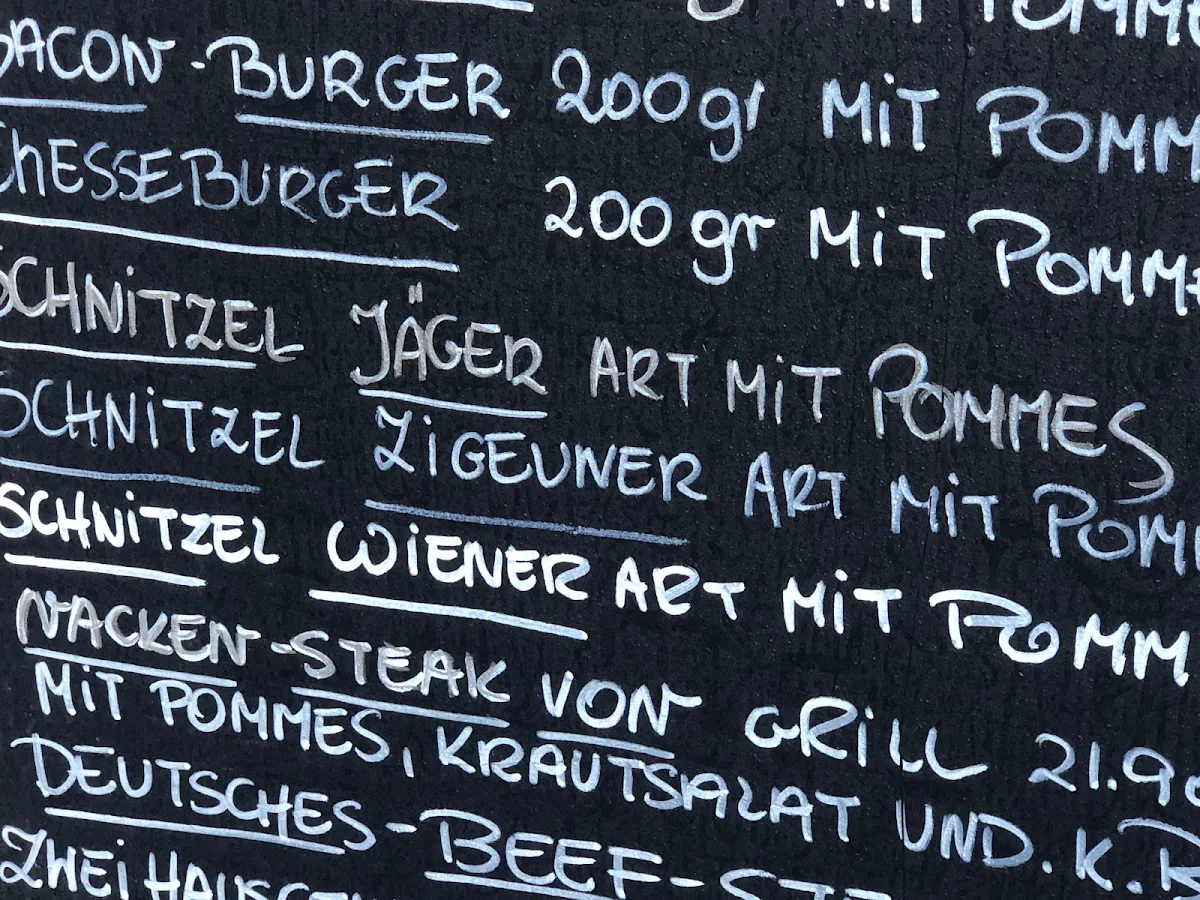 MiT POMME
BACON-BURGER 200gr MiT POMM
ChESSEBURGER 200gr MiT POMME
SCHNiTZEL JÄGER ART MiT POMMES
SCHNiTZEL ZiGEUNER ART MiT POMM
SCHNiTZEL WiENER ART MiT POMM
NACKEN-STEAK VON GRiLL 21.90
MiT POMMES, KRAUTSALAT UND. K.R
DEUTSCHES-BEEF-STE
ZWEi HAUSGE